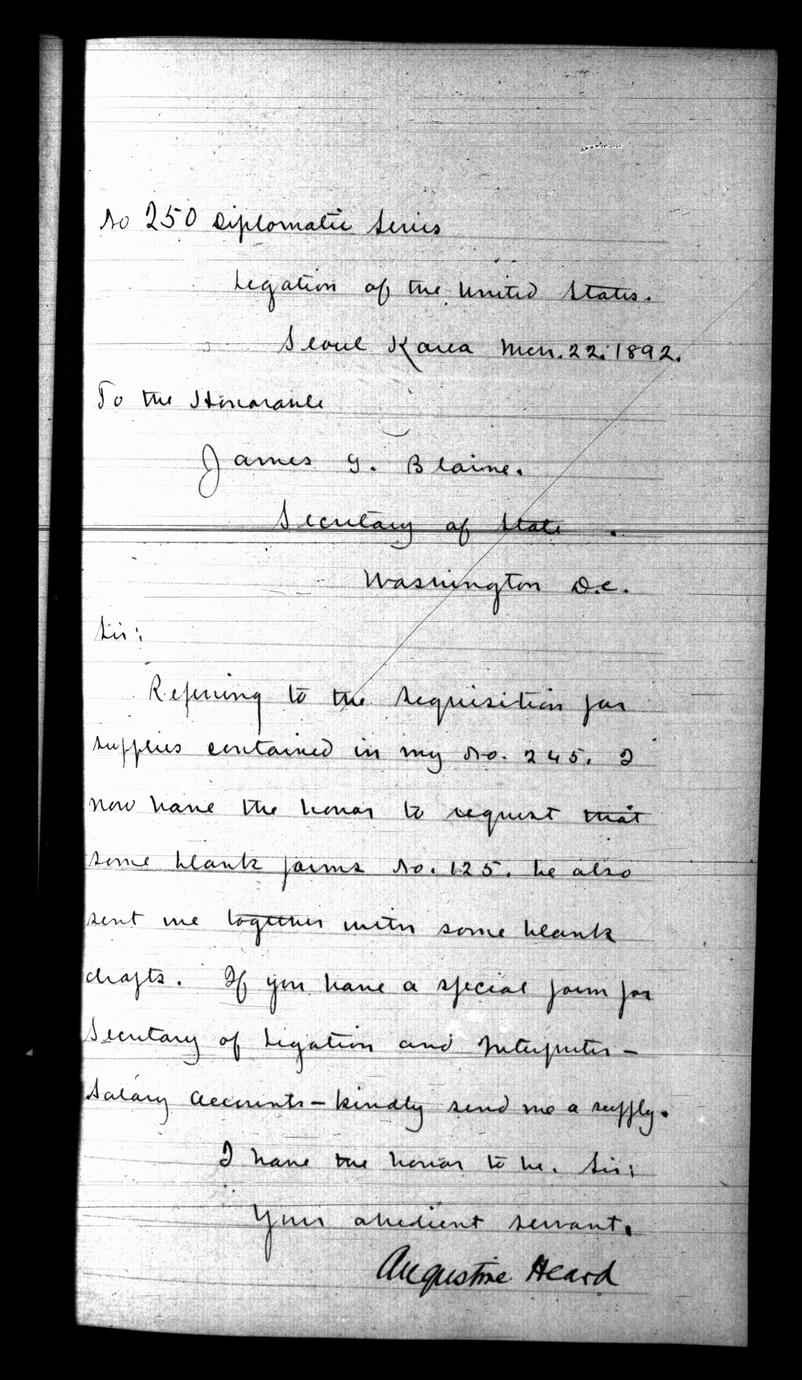 No 250 Diplomatic Series
Legation of the United States.
Seoul Korea Mch. 22. 1892.
To the Honorable
James G. Blaine.
Secretary of State.
Washington D.C.
Sir:
Referring to the requisition for
supplies contained in my No. 245. I
now have the honor to request that
some blank forms No. 125. be also
sent me together with some blank
drafts. If you have a special form for
Secretary of Legation and Interpreter -
Salary accounts - kindly send me a supply.
I have the honor to be. Sir:
Your obedient servant.
Augustine Heard